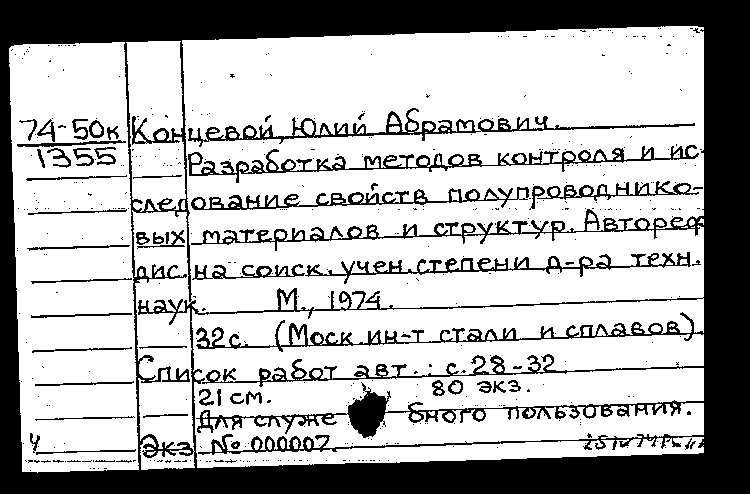 74-50к Концевой, Юлий Абрамович.
1355 Разработка методов контроля и ис-
следование свойств полупроводнико-
вых материалов и структур. Автореф
дис. на соиск. учен. степени д-ра техн.
наук. М., 1974.
32с. (Моск. ин-т стали и сплавов).
Список работ авт.: с.28-32
21 см. 80 экз.
Для служе бного пользования.
Экз № 000007.